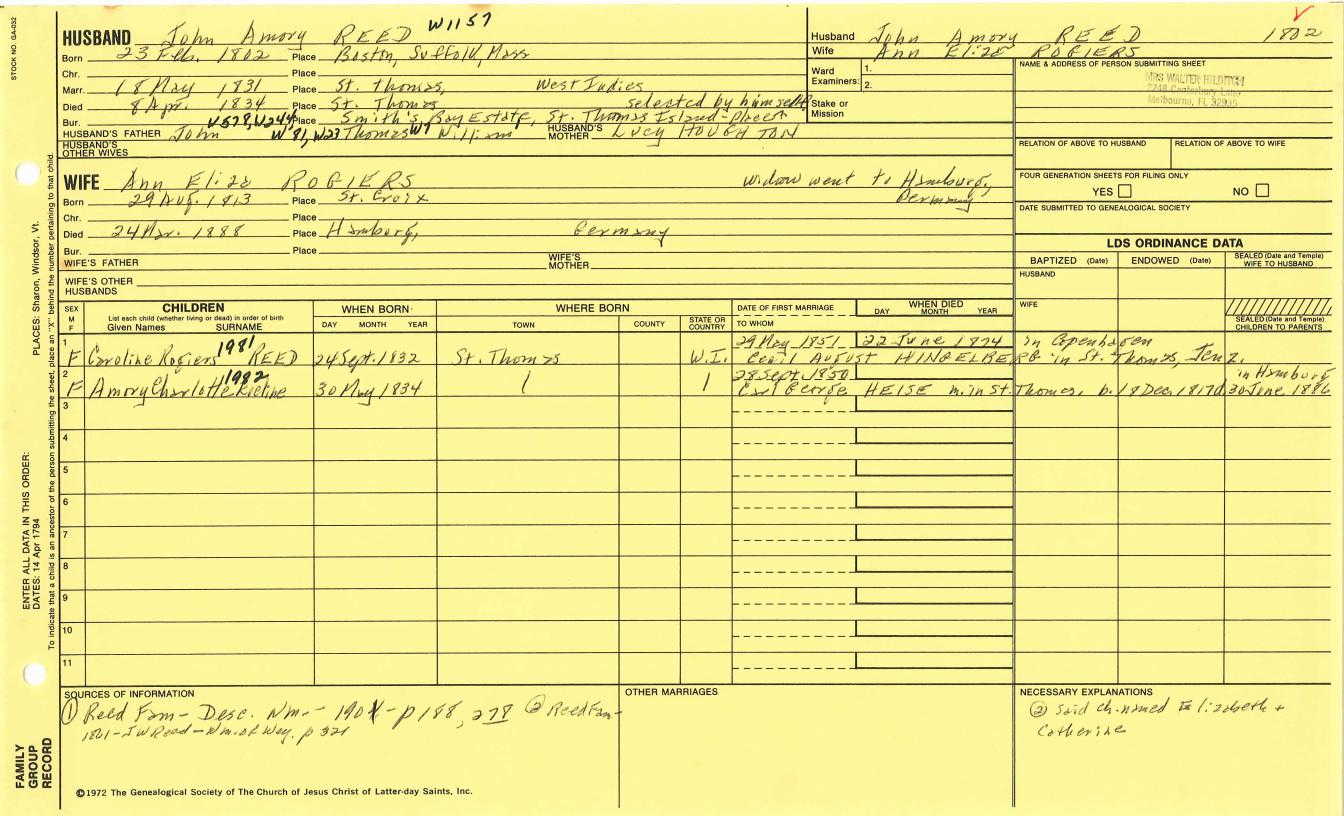 STOCK NO. GA-032
HUSBAND John Amory REED W1157
Born 23 Feb. 1802 Place Boston, Suffolk, Mass
Chr. Place
Marr. 18 May 1831 Place St. Thomas, West Indies
Died 8 Apr. 1834 Place St. Thomas selected by himself
Bur. Place Smith's Bay Estate, St. Thomas Island-place
HUSBAND'S FATHER John W578, W244, W91, W23 Thomas W7 William HUSBAND'S MOTHER Lucy HOUGHTON
HUSBAND'S OTHER WIVES
Husband John Amory REED 1802
Wife Ann Eliza ROGIERS
Ward Examiners: 1.
2.
Stake or Mission
NAME & ADDRESS OF PERSON SUBMITTING SHEET
MRS WALTER
Melbourne, FL
RELATION OF ABOVE TO HUSBAND RELATION OF ABOVE TO WIFE
FOUR GENERATION SHEETS FOR FILING ONLY
YES NO
DATE SUBMITTED TO GENEALOGICAL SOCIETY
WIFE Ann Eliza ROGIERS widow went to Hamburg, Germany
Born 29 Aug. 1813 Place St. Croix
Chr. Place
Died 24 Mar. 1888 Place Hamburg, Germany
Bur. Place
WIFE'S FATHER WIFE'S MOTHER
WIFE'S OTHER HUSBANDS
LDS ORDINANCE DATA
BAPTIZED (Date) ENDOWED (Date) SEALED (Date and Temple) WIFE TO HUSBAND
HUSBAND
WIFE
SEALED (Date and Temple) CHILDREN TO PARENTS
SEX M F CHILDREN WHEN BORN WHERE BORN DATE OF FIRST MARRIAGE WHEN DIED
List each child (whether living or dead) in order of birth
Given Names SURNAME DAY MONTH YEAR TOWN COUNTY STATE OR COUNTRY TO WHOM DAY MONTH YEAR
1 29 May 1851 22 June 1874 in Copenhagen
F Caroline Rogiers 1981 REED 24 Sept. 1832 St. Thomas W.I. August HINGELBERG in St. Thomas,
2 28 Sept. 1850 in Hamburg
F Amory Charlotte 1982 30 May 1834 Carl George HEISE m. in St. Thomas, b. 18 Dec. 1817 d. 30 June 1886
3
4
5
6
7
8
9
10
11
SOURCES OF INFORMATION
① Reed Fam- Desc. Nm.- 190 -p 188, 278 ② Reed Fam-
1861- J W Reed - Nm. of Wey. p 321
OTHER MARRIAGES
NECESSARY EXPLANATIONS
② said ch. named Elizabeth +
Catherine
©1972 The Genealogical Society of The Church of Jesus Christ of Latter-day Saints, Inc.
FAMILY GROUP RECORD
ENTER ALL DATA IN THIS ORDER:
DATES: 14 Apr 1794
PLACES: Sharon, Windsor, Vt.
To indicate that a child is an ancestor of the person submitting the sheet, place an "X" behind the number pertaining to that child.